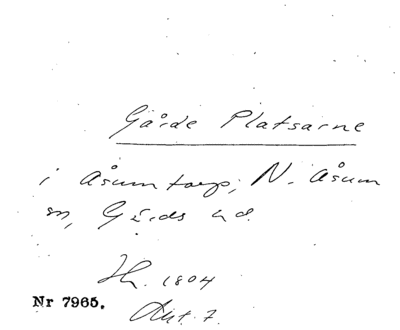 Gärde Platsarne
i Åsumtorp, N. Åsum
sn, Gärds hd.
Hr. 1804
Nr 7965.
Akt. 7.